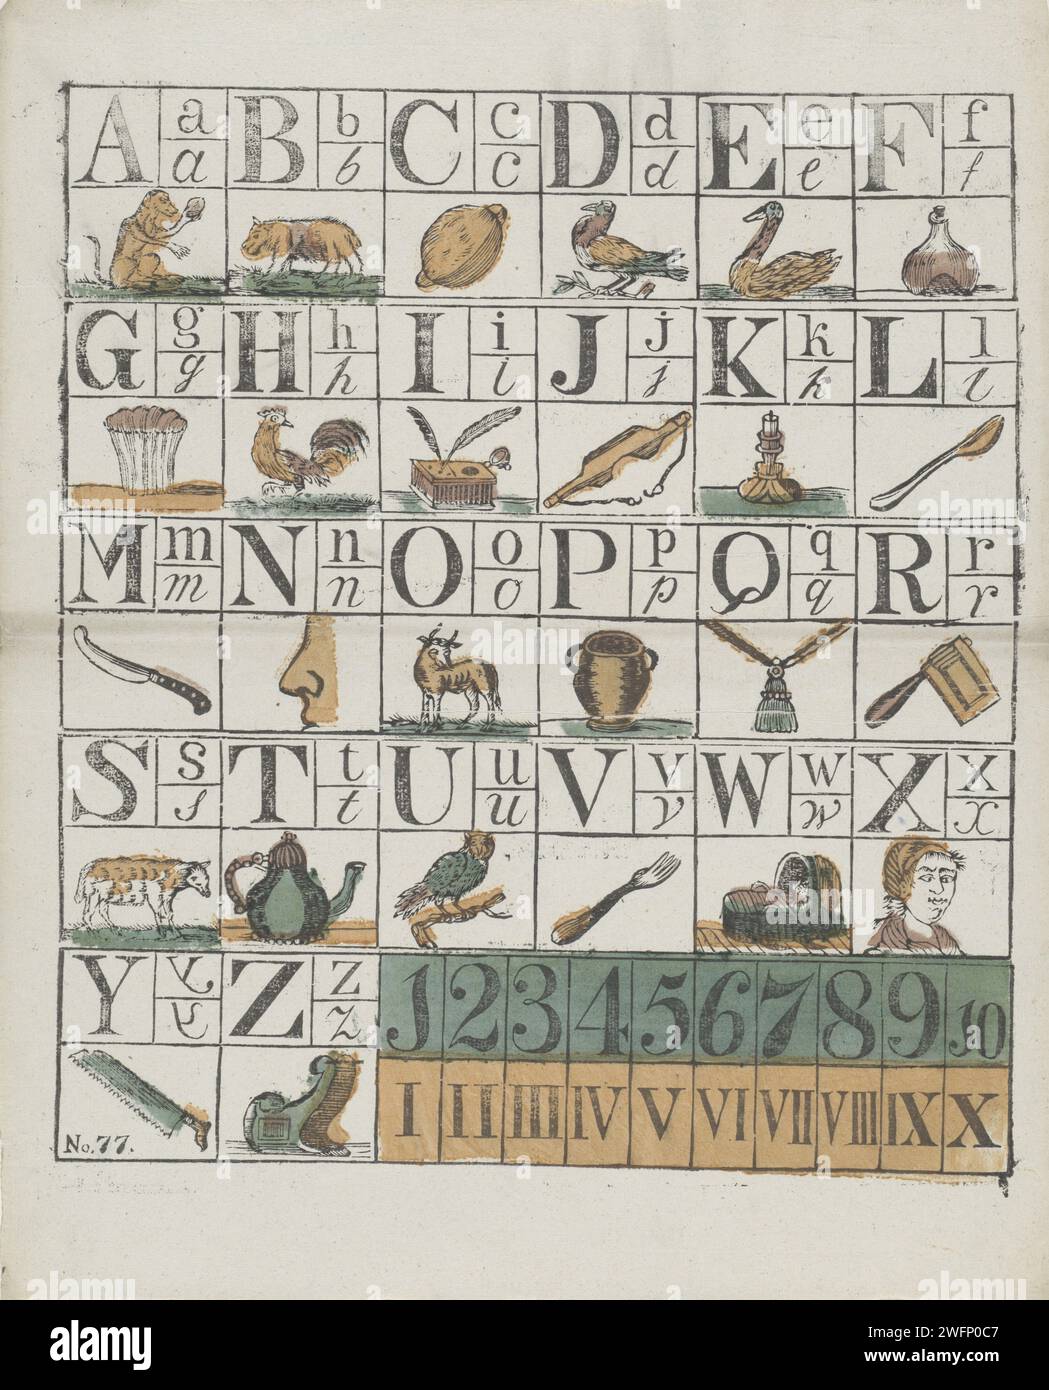 A a B b C c D d E e F f
a b c d e f
G g H h I i J j K k L l
g h i j k l
M m N n O o P p Q q R r
m n o p q r
S s T t U u V v W w X x
s t u v w x
Y y Z z J 2 3 4 5 6 7 8 9 10
y z
I II III IV V VI VII VIII IX X
No. 77.
alamy
Image ID: 2WFP0C7
www.alamy.com